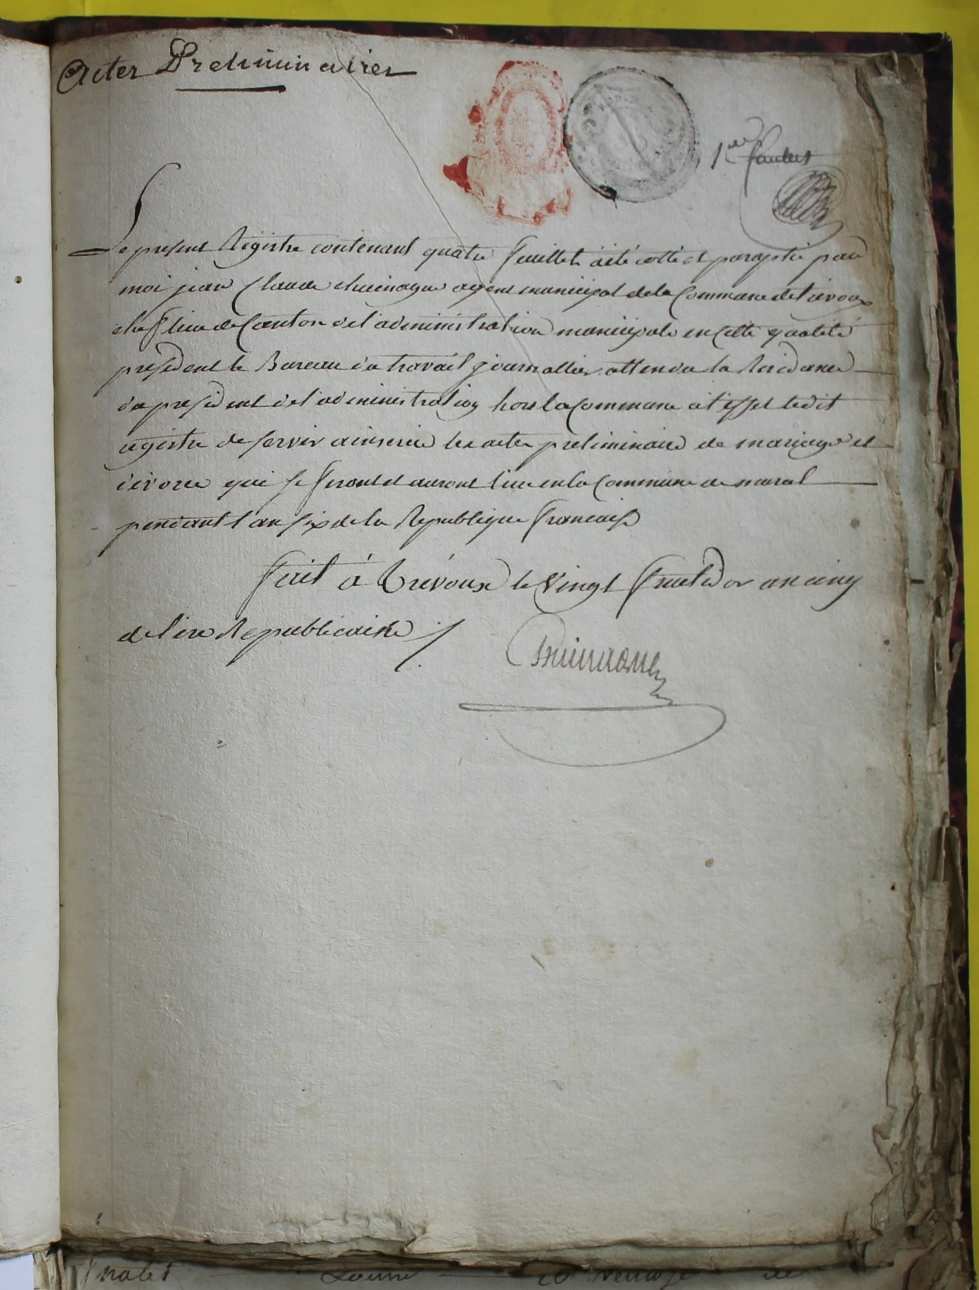 Actes Préliminaires
1er feuillet
Le present Régistre contenant quatre feuillets à été cotté et paraphé par
moi jean Claude agent municipal de la Commune de trevoux
chef lieu de Canton de l'administration municipale en cette qualité
president le Bureau du travail journallier attendu la Residence
du president de l'administration hors la Commune à l'effet ledit
régistre de servir a inserire les actes preliminaire de mariage et
divorce qui se feront et auront lieu en la Commune de
pendant l'an six de la Republique francaise
fait à Trévoux le Vingt fructidor an cinq
de l'ere Republicaine